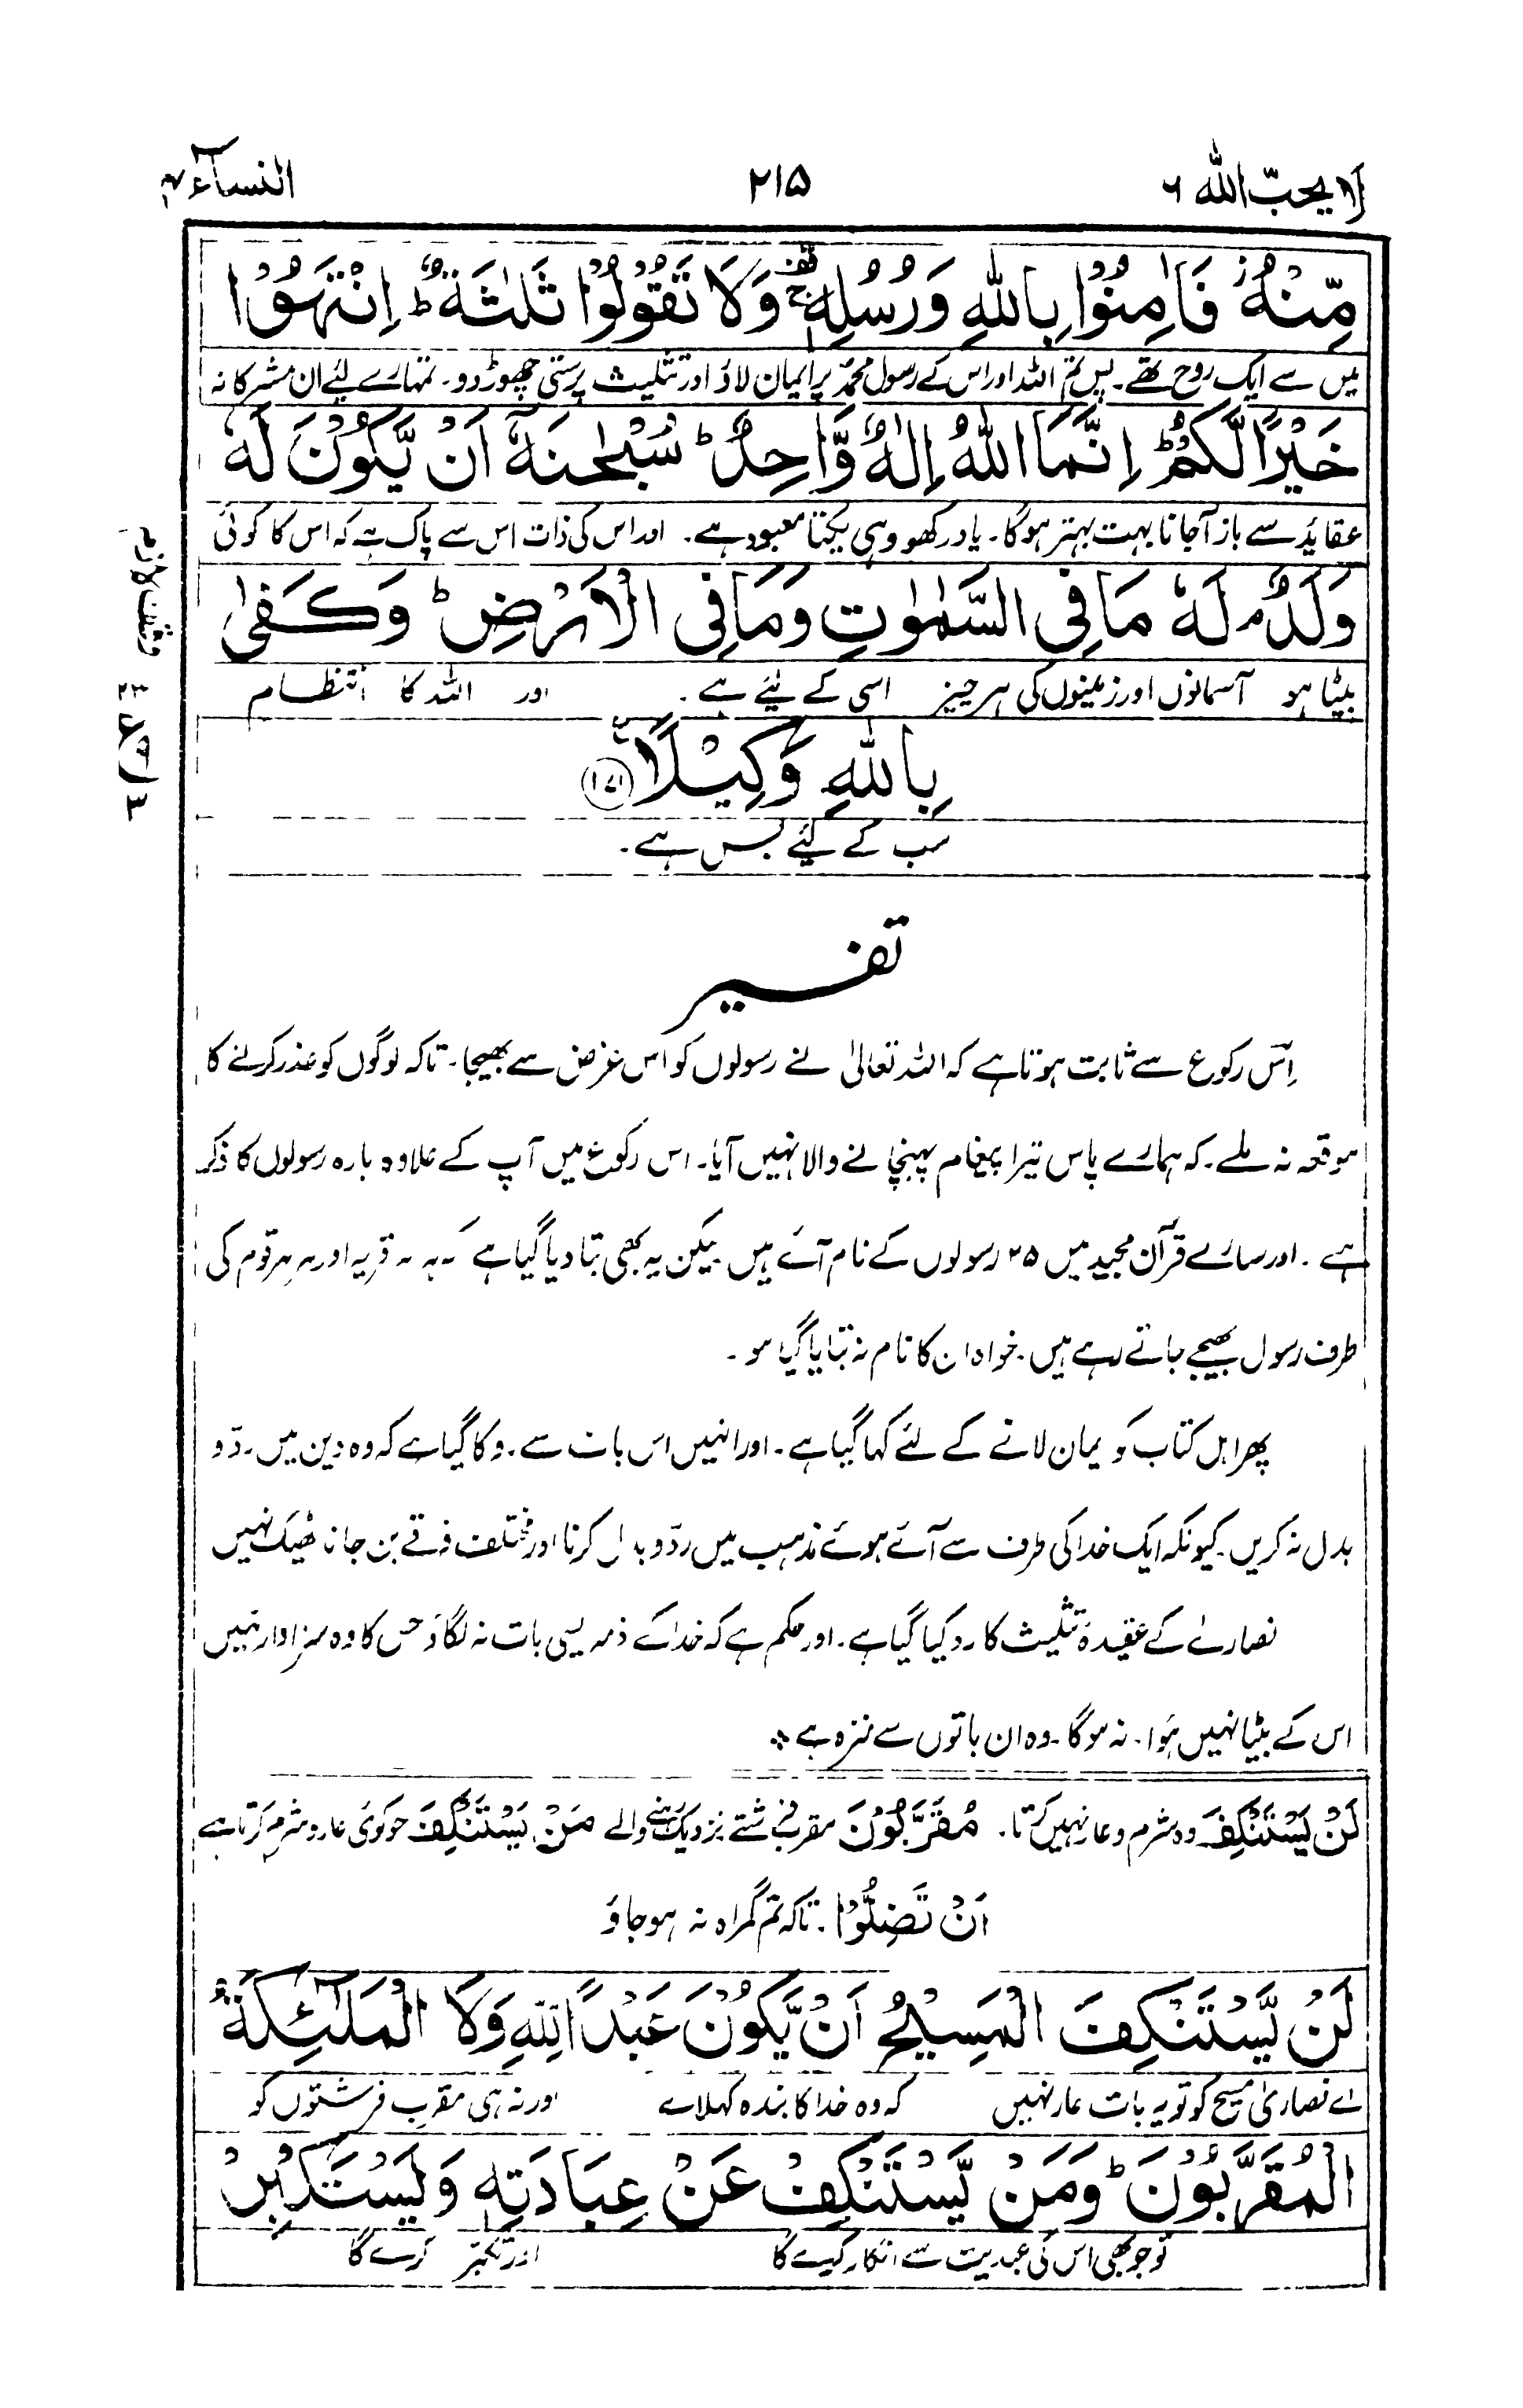 لا يحبّ الله ۶
۲۱۵
النسآء ۴
مِّنْهُ ۫ فَاٰمِنُوْا بِاللّٰهِ وَرُسُلِهٖ ۚ قف وَلَا تَقُوْلُوْا ثَلٰثَةٌ ؕ اِنْتَهُوْا
میں سے ایک روح تھے۔ پس تم اللہ اور اس کے رسول محمدؐ پر ایمان لاؤ اور تثلیث پرستی چھوڑ دو۔ تمہارے لئے ان مشرکانہ
خَيْرًا لَّكُمْ ؕ اِنَّمَا اللّٰهُ اِلٰهٌ وَّاحِدٌ ؕ سُبْحٰنَهٗٓ اَنْ يَّكُوْنَ لَهٗ
عقاید سے باز آجانا بہت بہتر ہوگا۔ یاد رکھو وہی یکتا معبود ہے۔ اور اس کی ذات اس سے پاک ہے کہ اس کا کوئی
وَلَدٌ ۘ لَهٗ مَا فِى السَّمٰوٰتِ وَمَا فِى الْاَرْضِ ؕ وَكَفٰى
بیٹا ہو آسمانوں اور زمینوں کی ہر چیز اسی کے لیے ہے۔ اور اللہ کا انتظام
بِاللّٰهِ وَكِيْلًا ع ۱۷۱
سب کے لیے بس ہے۔
وقف لازم
۲۳
ع
۳
تفسیر
اِس رکوع سے ثابت ہوتا ہے کہ اللہ تعالیٰ نے رسولوں کو اس غرض سے بھیجا۔ تاکہ لوگوں کو عذر کرنے کا
موقعہ نہ ملے۔ کہ ہمارے پاس تیرا پیغام پہنچانے والا نہیں آیا۔ اس رکوع میں آپ کے علاوہ بارہ رسولوں کا ذکر
ہے۔ اور سارے قرآن مجید میں ۲۵ رسولوں کے نام آئے ہیں لیکن یہ بھی بتا دیا گیا ہے کہ ہر قریہ اور ہر قوم کی
طرف رسول بھیجے جاتے رہے ہیں۔ خواہ ان کا نام نہ بتایا گیا ہو۔
پھر اہل کتاب کو ایمان لانے کے لئے کہا گیا ہے۔ اور انہیں اس بات سے روکا گیا ہے کہ وہ دین میں ردّ و
بدل نہ کریں۔ کیونکہ ایک خدا کی طرف سے آئے ہوئے مذہب میں ردّ و بدل کرنا اور مختلف فرقے بن جانا ٹھیک نہیں
نصاریٰ کے عقیدۂ تثلیث کا رد کیا گیا ہے۔ اور حکم ہے کہ خدا کے ذمہ ایسی بات نہ لگاؤ جس کا وہ سزاوار نہیں
اس کے بیٹا نہیں ہُوا۔ نہ ہوگا۔ وہ ان باتوں سے منزہ ہے ٭
لَنْ يَسْتَنْكِفَ وہ شرم و عار نہیں کرتا۔ مُقَرَّبُوْنَ مقرب فرشتے نزدیک رہنے والے مَنْ يَسْتَنْكِفَ جو کوئی عار و شرم کرتا ہے
اَنْ تَضِلُّوْا۔ تاکہ تم گمراہ نہ ہو جاؤ
لَنْ يَّسْتَنْكِفَ الْمَسِيْحُ اَنْ يَّكُوْنَ عَبْدًا لِلّٰهِ وَلَا الْمَلٰٓئِكَةُ
اے نصاریٰ مسیح کو تو یہ بات عار نہیں کہ وہ خدا کا بندہ کہلائے اور نہ ہی مقرب فرشتوں کو
الْمُقَرَّبُوْنَ ؕ وَمَنْ يَّسْتَنْكِفْ عَنْ عِبَادَتِهٖ وَيَسْتَكْبِرْ
تو جو بھی اس کی عبدیت سے انکار کرے گا اور تکبر کرے گا